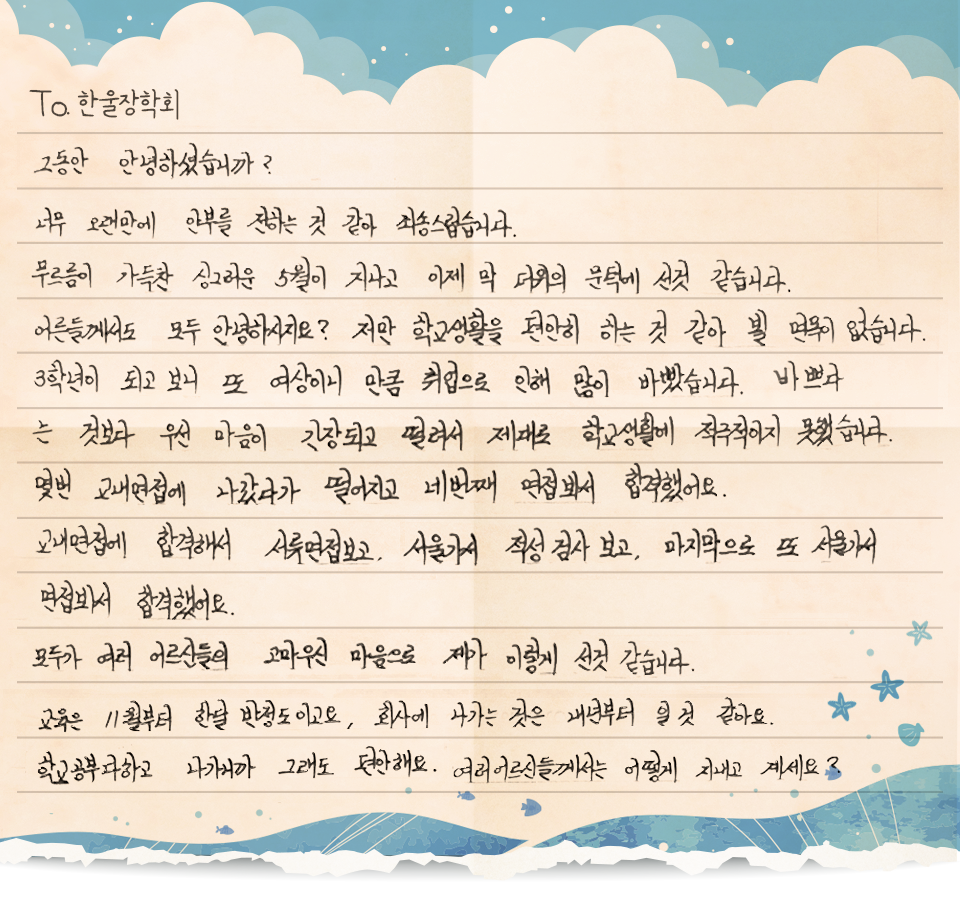 To. 한울장학회
그동안 안녕하셨습니까?
너무 오랜만에 안부를 전하는 것 같아 죄송스럽습니다.
푸르름이 가득찬 싱그러운 5월이 지나고 이제 막 더위의 문턱에 선것 같습니다.
어른들께서도 모두 안녕하시지요? 저만 학교생활을 편안히 하는 것 같아 뵐 면목이 없습니다.
3학년이 되고 보니 또 여상이니 만큼 취업으로 인해 많이 바빴습니다. 바쁘다
는 것보다 우선 마음이 긴장되고 떨려서 제대로 학교생활에 적극적이지 못했습니다.
몇번 교내면접에 나갔다가 떨어지고 네번째 면접봐서 합격했어요.
교내면접에 합격해서 서류면접보고, 서울가서 적성검사 보고, 마지막으로 또 서울가서
면접봐서 합격했어요.
모두가 여러 어르신들의 고마우신 마음으로 제가 이렇게 선것 같습니다.
교육은 11월부터 한달 반정도이고요, 회사에 나가는 것은 내년부터 일 것 같아요.
학교공부다하고 나가니까 그래도 편안해요. 여러어르신들께서는 어떻게 지내고 계세요?